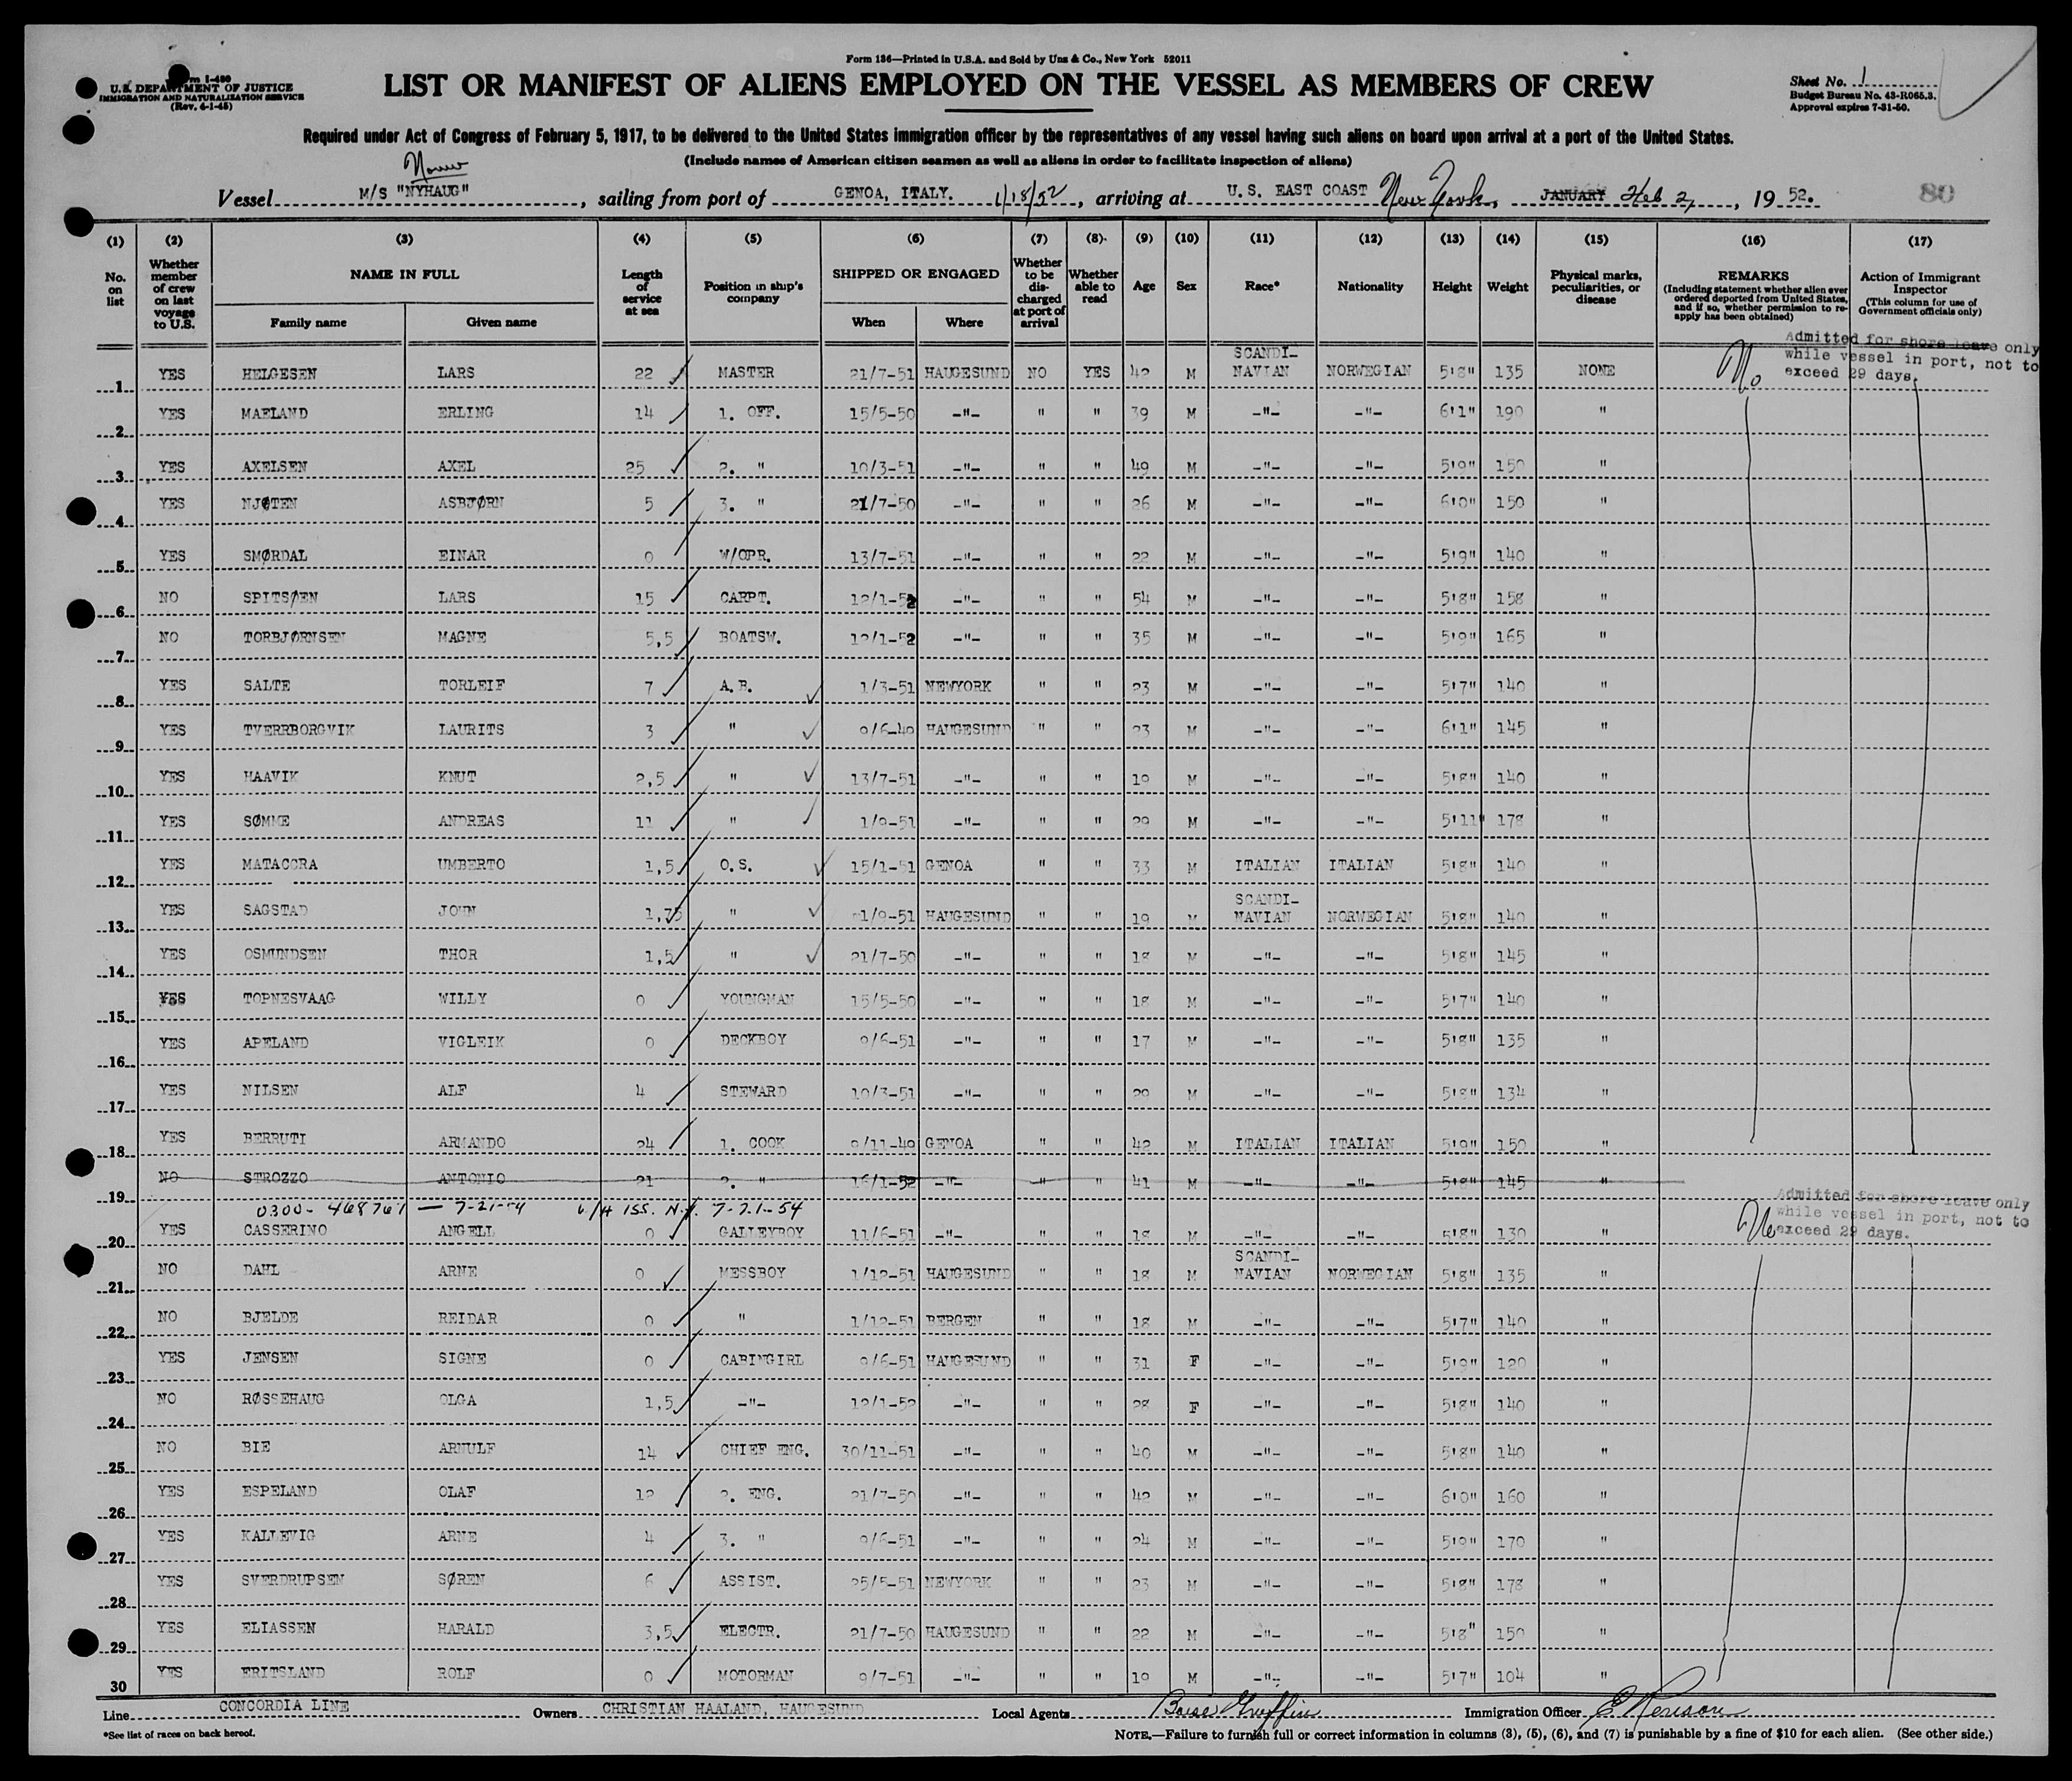 Form 136—Printed in U.S.A. and Sold by Unz & Co., New York 52011
Form I-480
U.S. DEPARTMENT OF JUSTICE
IMMIGRATION AND NATURALIZATION SERVICE
(Rev. 4-1-45)
LIST OR MANIFEST OF ALIENS EMPLOYED ON THE VESSEL AS MEMBERS OF CREW
Sheet No. 1
Budget Bureau No. 43-R065.3.
Approval expires 7-31-50.
Required under Act of Congress of February 5, 1917, to be delivered to the United States immigration officer by the representatives of any vessel having such aliens on board upon arrival at a port of the United States.
(Include names of American citizen seamen as well as aliens in order to facilitate inspection of aliens)
Vessel M/S "NYHAUG", sailing from port of GENOA, ITALY. 1/18/52, arriving at U.S. EAST COAST New York, JANUARY Feb 2, 1952. 80
(1) No. on list
(2) Whether member of crew on last voyage to U.S.
(3) NAME IN FULL Family name Given name
(4) Length of service at sea
(5) Position in ship's company
(6) SHIPPED OR ENGAGED When Where
(7) Whether to be discharged at port of arrival
(8) Whether able to read
(9) Age
(10) Sex
(11) Race*
(12) Nationality
(13) Height
(14) Weight
(15) Physical marks, peculiarities, or disease
(16) REMARKS (Including statement whether alien ever ordered deported from United States, and if so, whether permission to reapply has been obtained)
(17) Action of Immigrant Inspector (This column for use of Government officials only)
Admitted for shore leave only
while vessel in port, not to
exceed 29 days.
1 YES HELGESEN LARS 22 MASTER 21/7-51 HAUGESUND NO YES 42 M SCANDINAVIAN NORWEGIAN 5'8" 135 NONE No
2 YES MAELAND ERLING 14 1. OFF. 15/5-50 -"- " " 39 M -"- -"- 6'1" 190 "
3 YES AXELSEN AXEL 25 2. " 10/3-51 -"- " " 49 M -"- -"- 5'9" 150 "
4 YES NJØTEN ASBJØRN 5 3. " 21/7-50 -"- " " 26 M -"- -"- 6'0" 150 "
5 YES SMØRDAL EINAR 0 W/OPR. 13/7-51 -"- " " 22 M -"- -"- 5'9" 140 "
6 NO SPITSØEN LARS 15 CARPT. 12/1-52 -"- " " 54 M -"- -"- 5'8" 158 "
7 NO TORBJØRNSEN MAGNE 5,5 BOATSW. 12/1-52 -"- " " 35 M -"- -"- 5'9" 165 "
8 YES SALTE TORLEIF 7 A.B. 1/3-51 NEWYORK " " 23 M -"- -"- 5'7" 140 "
9 YES TVERRBORGVIK LAURITS 3 " 9/6-49 HAUGESUND " " 23 M -"- -"- 6'1" 145 "
10 YES HAAVIK KNUT 2,5 " 13/7-51 -"- " " 19 M -"- -"- 5'8" 140 "
11 YES SØMME ANDREAS 11 " 1/9-51 -"- " " 29 M -"- -"- 5'11" 178 "
12 YES MATACCRA UMBERTO 1,5 O.S. 15/1-51 GENOA " " 33 M ITALIAN ITALIAN 5'8" 140 "
13 YES SAGSTAD JOHN 1,75 " 1/9-51 HAUGESUND " " 19 M SCANDINAVIAN NORWEGIAN 5'8" 140 "
14 YES OSMUNDSEN THOR 1,5 " 21/7-50 -"- " " 18 M -"- -"- 5'8" 145 "
15 YES TOPNESVAAG WILLY 0 YOUNGMAN 15/5-50 -"- " " 18 M -"- -"- 5'7" 140 "
16 YES APELAND VIGLEIK 0 DECKBOY 9/6-51 -"- " " 17 M -"- -"- 5'8" 135 "
17 YES NILSEN ALF 4 STEWARD 10/3-51 -"- " " 29 M -"- -"- 5'8" 134 "
18 YES BERRUTI ARMANDO 24 1. COOK 9/11-49 GENOA " " 42 M ITALIAN ITALIAN 5'9" 150 "
19 NO STROZZO ANTONIO 21 2. " 16/1-52 -"- " " 41 M -"- -"- 5'8" 145 "
0300-468761 — 7-21-54 1/4 ISS. N.Y. 7-21-54
Admitted for shore leave only
while vessel in port, not to
exceed 29 days.
20 YES CASSERINO ANGELL 0 GALLEYBOY 11/6-51 -"- " " 18 M -"- -"- 5'8" 130 " No
21 NO DAHL ARNE 0 MESSBOY 1/12-51 HAUGESUND " " 18 M SCANDINAVIAN NORWEGIAN 5'8" 135 "
22 NO BJELDE REIDAR 0 " 1/12-51 BERGEN " " 18 M -"- -"- 5'7" 140 "
23 YES JENSEN SIGNE 0 CABINGIRL 9/6-51 HAUGESUND " " 31 F -"- -"- 5'9" 120 "
24 NO RØSSEHAUG OLGA 1,5 -"- 12/1-52 -"- " " 28 F -"- -"- 5'8" 140 "
25 NO BIE ARNULF 14 CHIEF ENG. 30/11-51 -"- " " 40 M -"- -"- 5'8" 140 "
26 YES ESPELAND OLAF 12 2. ENG. 21/7-50 -"- " " 42 M -"- -"- 6'0" 160 "
27 YES KALLEVIG ARNE 4 3. " 9/6-51 -"- " " 24 M -"- -"- 5'9" 170 "
28 YES SVERDRUPSEN SØREN 6 ASSIST. 25/5-51 NEWYORK " " 23 M -"- -"- 5'8" 178 "
29 YES ELIASSEN HARALD 3,5 ELECTR. 21/7-50 HAUGESUND " " 22 M -"- -"- 5'8" 150 "
30 YES ERITSLAND ROLF 0 MOTORMAN 9/7-51 -"- " " 19 M -"- -"- 5'7" 104 "
Line CONCORDIA LINE Owners CHRISTIAN HAALAND, HAUGESUND Local Agents Boise Griffin Immigration Officer
*See list of races on back hereof.
NOTE.—Failure to furnish full or correct information in columns (3), (5), (6), and (7) is punishable by a fine of $10 for each alien. (See other side.)